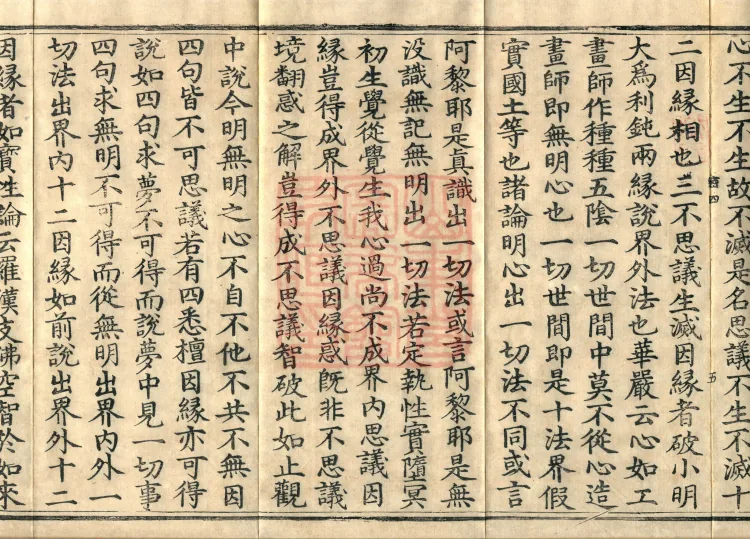 心不生不生故不滅是名思議不生不滅十
二因緣相也三不思議生滅因緣者破小明
大爲利鈍兩緣說界外法也華嚴云心如工
畫師作種種五陰一切世間中莫不從心造
畫師即無明心也一切世間即是十法界假
實國土等也諸論明心出一切法不同或言
阿黎耶是真識出一切法或言阿黎耶是無
没識無記無明出一切法若定執性實墮冥
初生覺從覺生我心過尚不成界内思議因
緣豈得成界外不思議因緣惑既非不思議
境翻惑之解豈得成不思議智破此如止觀
中說今明無明之心不自不他不共不無因
四句皆不可思議若有四悉檀因緣亦可得
說如四句求夢不可得而說夢中見一切事
四句求無明不可得而從無明出界内外一
切法出界内十二因緣如前說出界外十二
因緣者如寶性論云羅漢支佛空智於如來